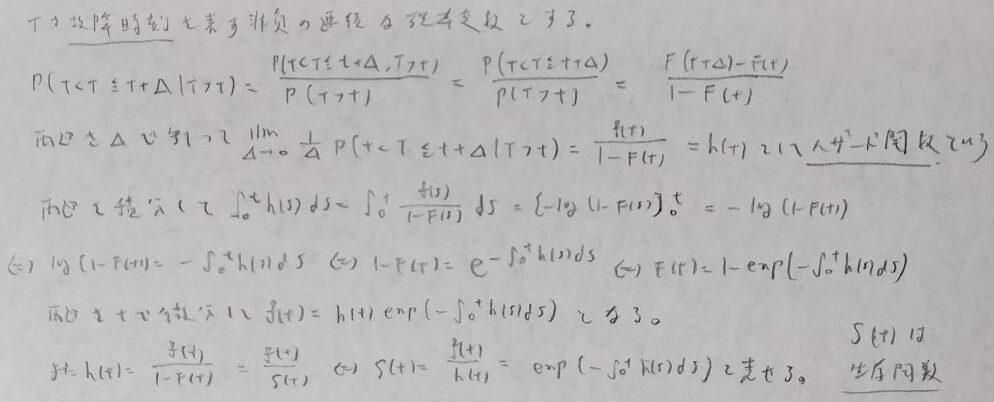 Tを故障時刻を表す非負の連続な確率変数とする。
P(t<T≦t+Δ|T>t) = P(t<T≦t+Δ, T>t) / P(T>t) = P(t<T≦t+Δ) / P(T>t) = F(t+Δ)-F(t) / 1-F(t)
両辺をΔで割って lim Δ→0 1/Δ P(t<T≦t+Δ|T>t) = f(t) / 1-F(t) = h(t) としハザード関数という
両辺を積分して ∫₀ᵗh(s)ds = ∫₀ᵗ f(s) / 1-F(s) ds = [-log(1-F(s))]₀ᵗ = -log(1-F(t))
⇔ log(1-F(t)) = -∫₀ᵗh(s)ds ⇔ 1-F(t) = e^{-∫₀ᵗh(s)ds} ⇔ F(t) = 1-exp(-∫₀ᵗh(s)ds)
両辺をtで微分して f(t) = h(t) exp(-∫₀ᵗh(s)ds) となる。
また h(t) = f(t) / 1-F(t) = f(t) / S(t) ⇔ S(t) = f(t) / h(t) = exp(-∫₀ᵗh(s)ds) と表せる。
S(t)は
生存関数